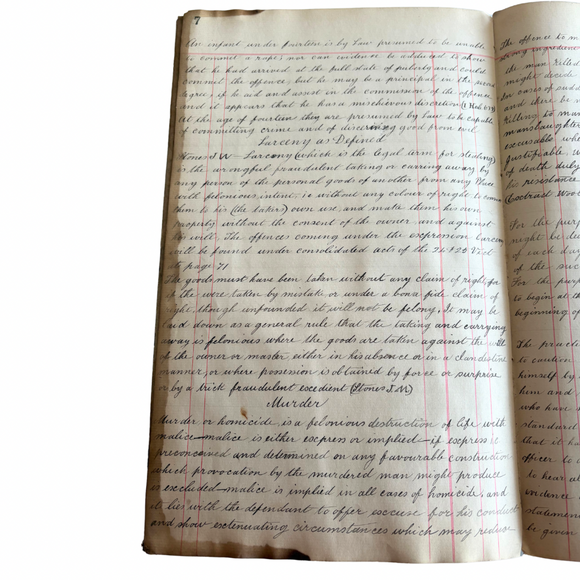 7
An infant under fourteen is by Law presumed to be unable
to commit a rape nor can evidence be adduced to show
that he had arrived at the full state of puberty and could
commit the offence, but he may be a principal in the second
degree, if he aid and assist in the commission of the offence
and it appears that he has a mischievous discretion
At the age of fourteen they are presumed by Law to be capable
of committing crime and of discerning good from evil
Larceny as Defined
Larceny (which is the legal term for stealing)
is the wrongful fraudulent taking or carrying away by
any person of the personal goods of another from any Place
with felonious intent, ie without any colour of right to
them to his (the takers) own use, and make them his own
Property without the consent of the owner and against
his will. The offences coming under the expression Larceny
will be found under consolidated acts of the 24 & 25 Vict
page 71
The goods must have been taken without any claim of right, for
if the were taken by mistake or under a bona fide claim of
right, though unfounded it will not be felony. It may be
laid down as a general rule that the taking and carrying
away is felonious where the goods are taken against the will
of the owner or master either in his absence or in a clandestine
manner, or where possession is obtained by force or surprise
or by a trick fraudulent excedient (Stones J.M)
Murder
Murder or homicide, is a felonious destruction of life with
malice—malice is either express or implied—if express
preconceived and determined on any favourable construction
which provocation by the murdered man might produce
is excluded—malice is implied in all cases of homicide, and
it lies with the defendant to offer excuse for his conduct
and show extenuating circumstances which may reduce
The offence to m
the man killed
might decide
In cases of
and there be
killing to man
manslaughter
excusable whe
justifiable. W
of death
his resistance
(Extract
For the pur
might be de
of each day
of the suc
For the purp
to begin at
beginning of
The practic
to caution
himself by
him and
who have
standard
that it h
officer to
to hear al
evidence
statement
be given